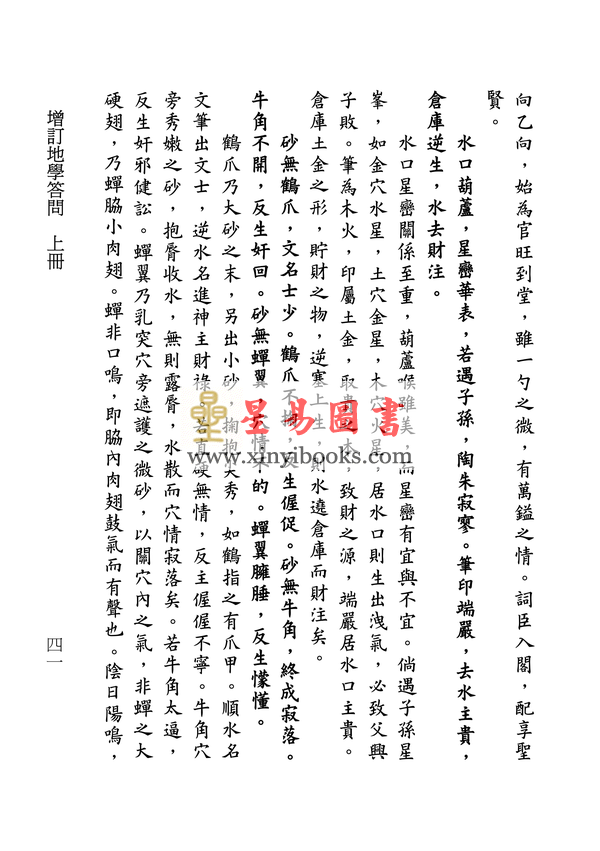 向乙向，始為官旺到堂，雖一勺之微，有萬鎰之情。詞臣入閣，配享聖
賢。
水口葫蘆，星巒華表，若遇子孫，陶朱寂寥。筆印端嚴，去水主貴，
倉庫逆生，水去財注。
水口星巒關係至重，葫蘆喉雖美，而星巒有宜與不宜。倘遇子孫星
峯，如金穴水星，土穴金星，木穴火星，居水口則生出洩氣，必致父興
子敗。筆為木火，印屬土金，取貴之本，致財之源，端嚴居水口主貴。
倉庫土金之形，貯財之物，逆塞上生，則水遶倉庫而財注矣。
砂無鶴爪，文名士少。鶴爪不掬，反生偓促。砂無牛角，終成寂落。
牛角不開，反生奸回。砂無蟬翼，穴情不的。蟬翼臃腫，反生懞懂。
鶴爪乃大砂之末，另出小砂，掬抱尖秀，如鶴指之有爪甲。順水名
文筆出文士，逆水名進神主財祿。若直硬無情，反主偓偓不寧。牛角穴
旁秀嫩之砂，抱脣收水，無則露脣，水散而穴情寂落矣。若牛角太逼，
反生奸邪健訟。蟬翼乃乳突穴旁遮護之微砂，以關穴內之氣，非蟬之大
硬翅，乃蟬脇小肉翅。蟬非口鳴，即脇內肉翅鼓氣而有聲也。陰日陽鳴，
增訂地學答問　上冊
四一
星易圖書
www.xinyibooks.com